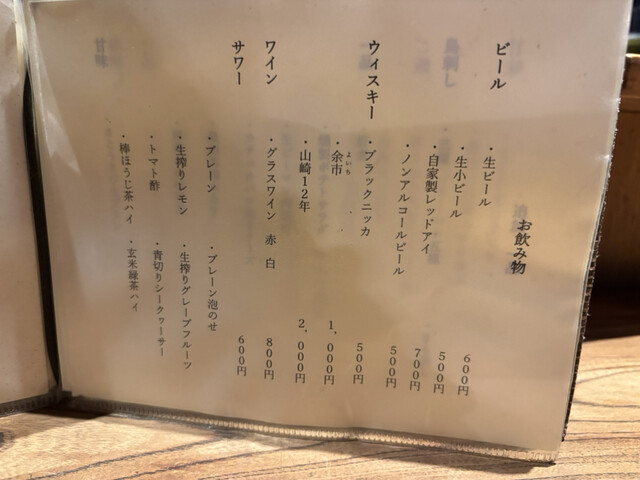 お飲み物
ビール
・生ビール 600円
・生小ビール 500円
・自家製レッドアイ 700円
・ノンアルコールビール 500円
ウィスキー
・ブラックニッカ 500円
・余市 1,000円
よいち
・山崎12年 2,000円
ワイン
・グラスワイン 赤 白 800円
サワー
600円
・プレーン ・プレーン泡のせ
・生搾りレモン ・生搾りグレープフルーツ
・トマト酢 ・青切りシークヮーサー
・棒ほうじ茶ハイ ・玄米緑茶ハイ
甘味